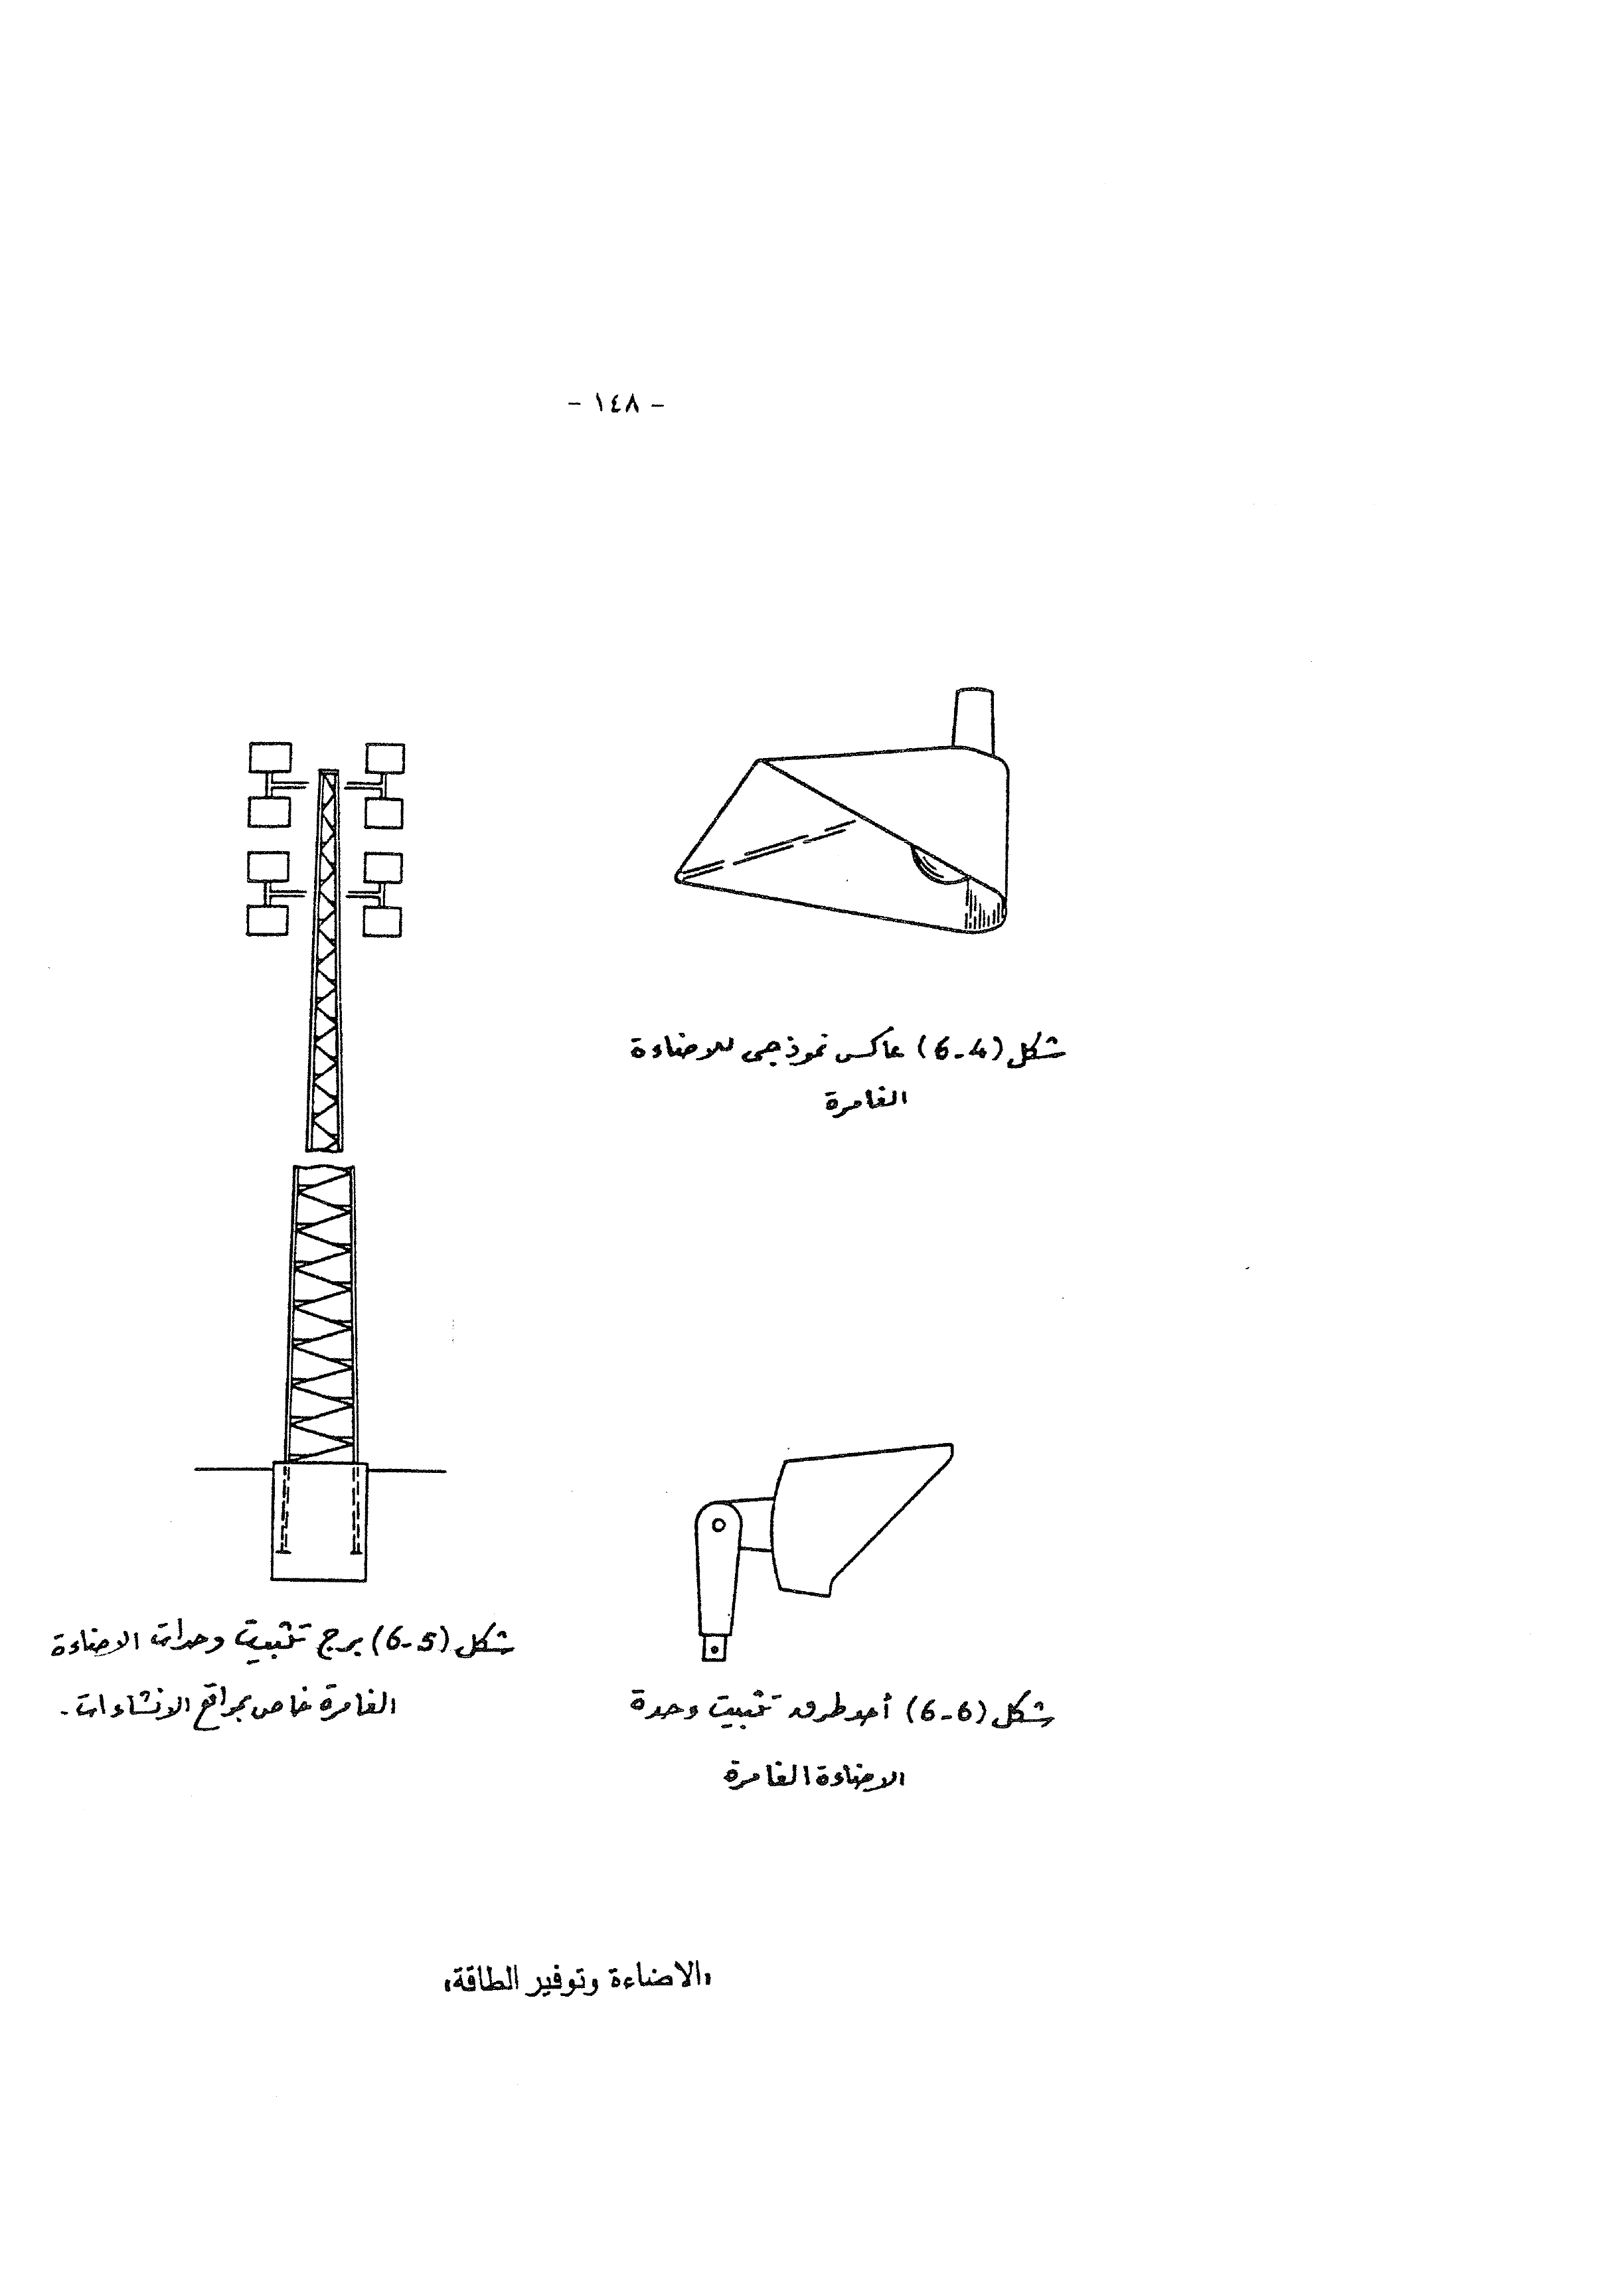 - ١٤٨ -
شكل (6-4) عاكس نموذجى للاضاءة
الغامرة
شكل (6-5) برج تثبيت وحدات الاضاءة
الغامرة خاص بمواقع الانشاءات.
شكل (6-6) أحد طرق تثبيت وحدة
الاضاءة الغامرة
«الاضاءة وتوفير الطاقة»